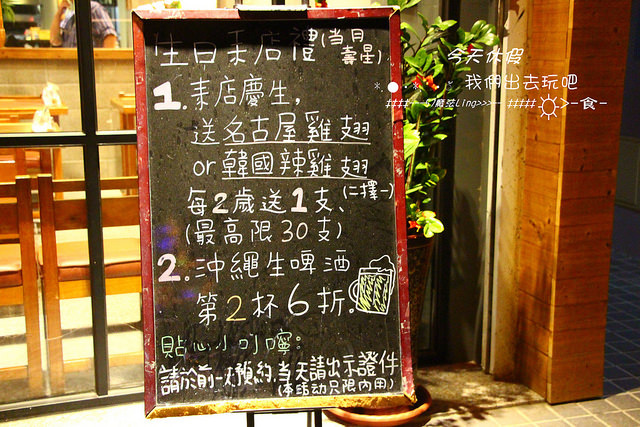 生日来店禮(當月壽星)
1.来店慶生,
送名古屋雞翅
or韓國辣雞翅
每2歲送1支、(二擇一)
(最高限30支)
2.沖繩生啤酒
第2杯6折。
貼心小叮嚀:
請於前一天預約.當天請出示證件
(本活动只限内用)
今天休假
我們出去玩吧